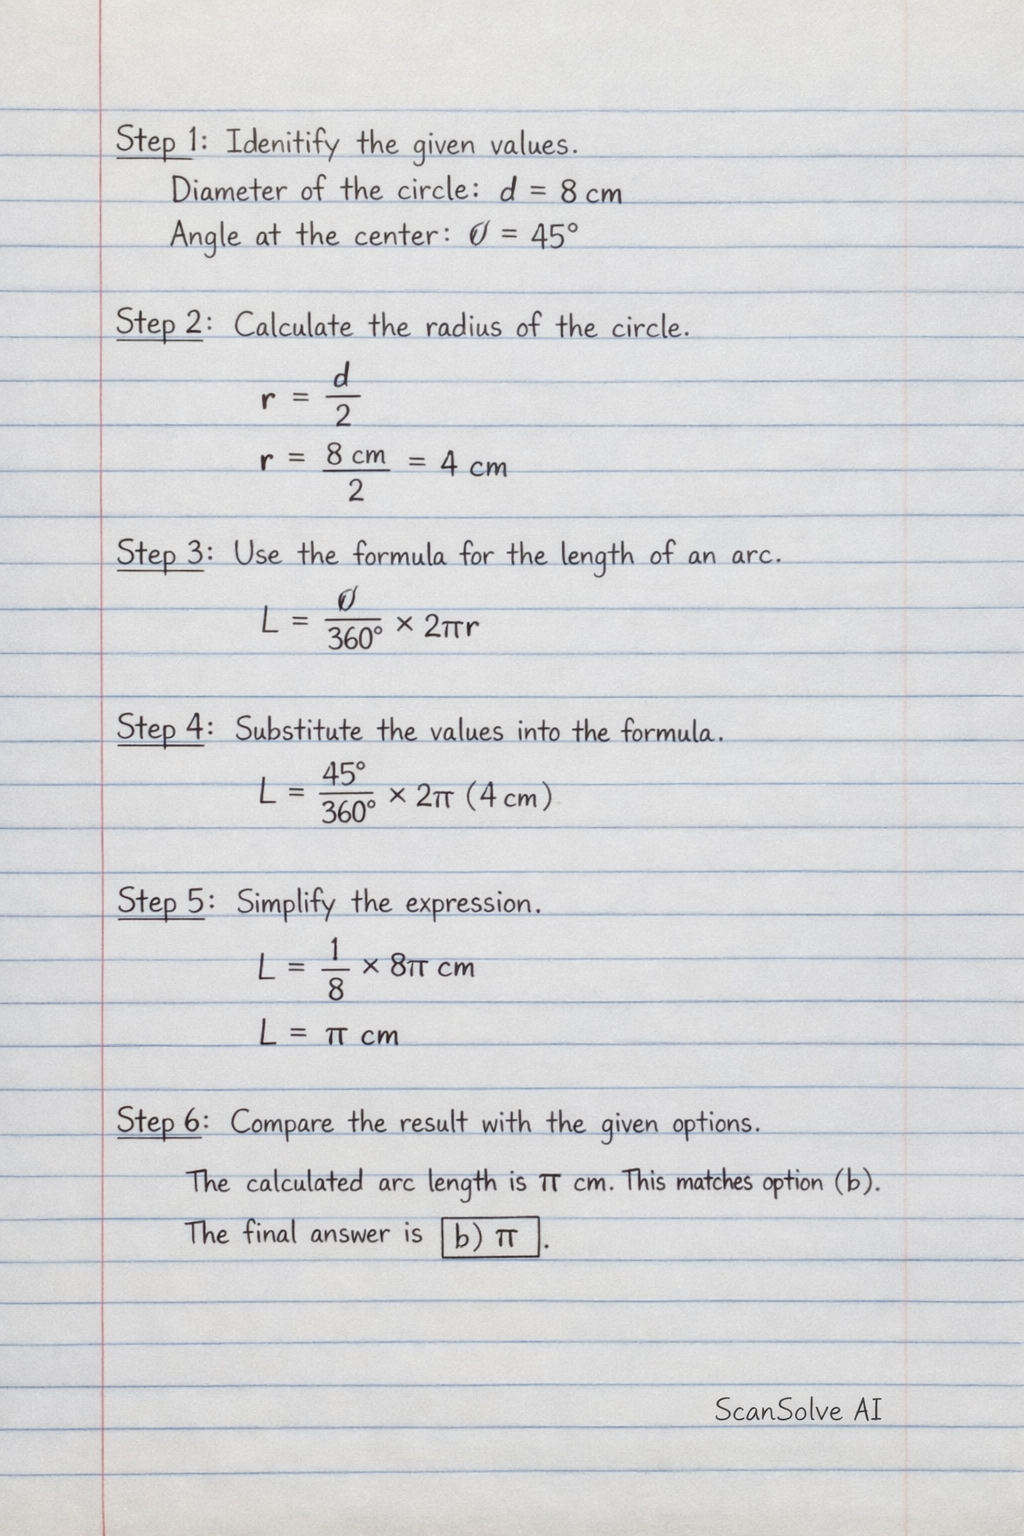 Step 1: Idenitify the given values.
Diameter of the circle: d = 8 cm
Angle at the center: θ = 45°
Step 2: Calculate the radius of the circle.
r = d/2
r = 8 cm/2 = 4 cm
Step 3: Use the formula for the length of an arc.
L = θ/360° × 2πr
Step 4: Substitute the values into the formula.
L = 45°/360° × 2π (4 cm)
Step 5: Simplify the expression.
L = 1/8 × 8π cm
L = π cm
Step 6: Compare the result with the given options.
The calculated arc length is π cm. This matches option (b).
The final answer is b) π.
ScanSolve AI